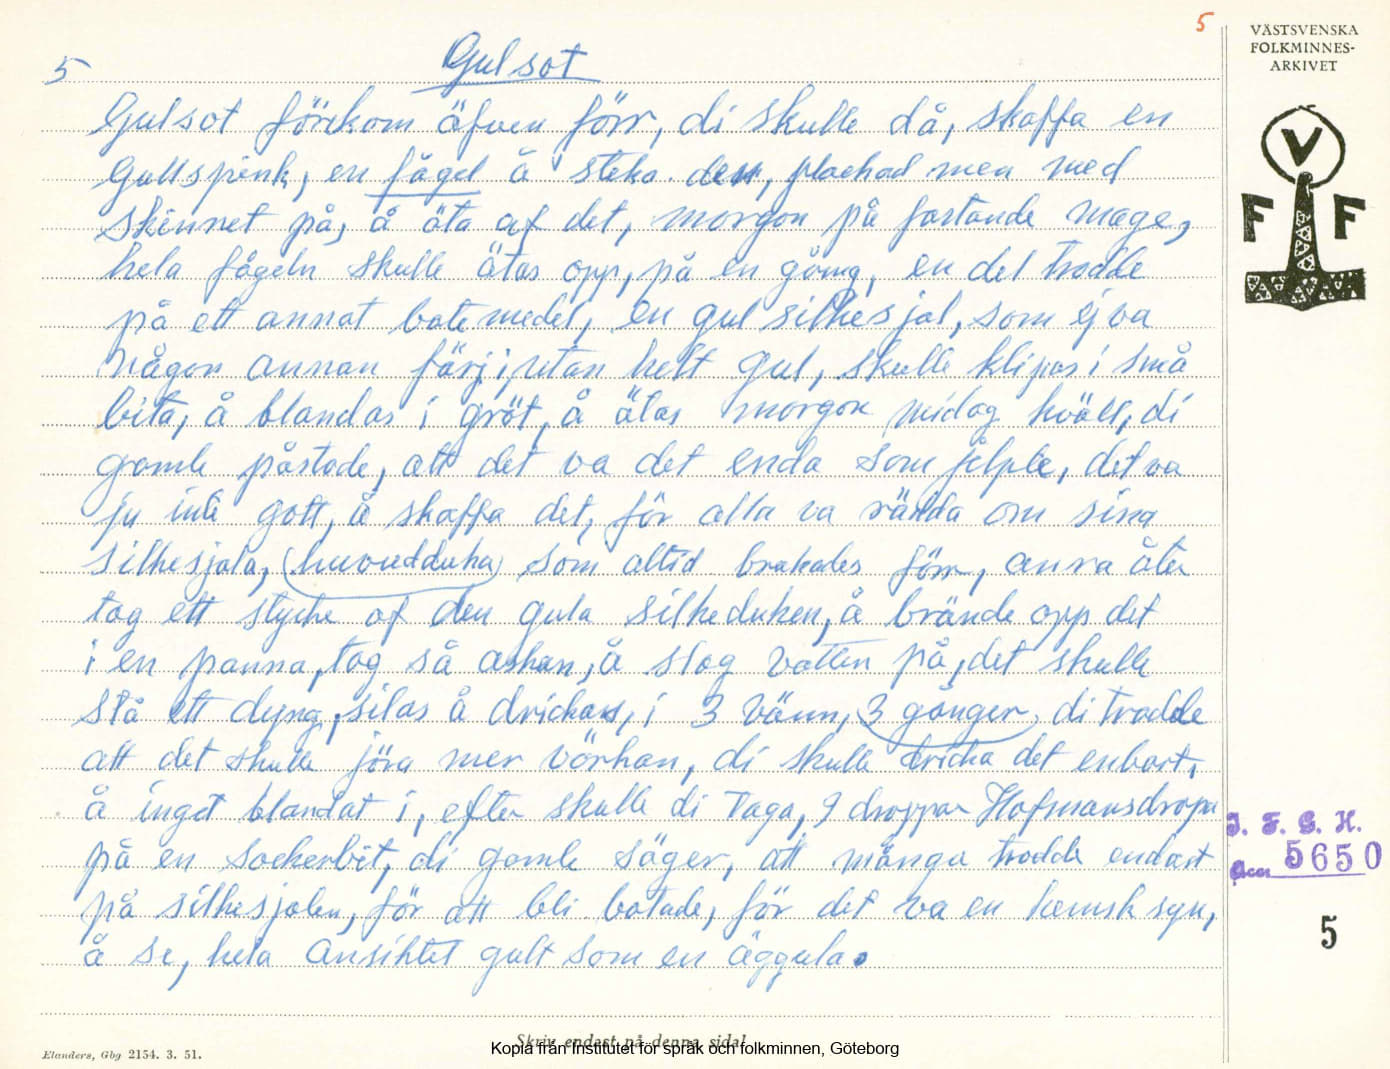 5
VÄSTSVENSKA
FOLKMINNES-
ARKIVET
5 Gulsot
Gulsot förekom äfven förr, di skulle då, skaffa en
Gullspink, en fågel å steka den, plockad men med
skinnet på, å äta af det, morgon på fastande mage,
hela fågeln skulle ätas opp, på en gång, en del trodde
på ett annat botemedel, en gul silkesjal, som ej va
någon annan färj i, utan helt gul, skulle klipas i små
bita, å blandas i gröt, å ätas morgon midag kväll, di
gamle påstode, att det va det enda som jelpte, det va
ju inte gott, å skaffa det, för alla va rädda om sina
silkesjala, (huvudduka) som altid brukades förr, anra åter
tog ett stycke af den gula silkeduken, å brände opp det
i en panna, tog så askan, å slog vatten på, det skulle
stå ett dyng, silas å drickas, i 3 vänn, 3 gånger, di trodde
att det skulle jöra mer vörkan, di skulle dricka det enbart,
å inget blandat i, efter skulle di taga, 9 droppar Hofmansdropa
på en sockerbit, di gamle säger, att många trodde endast
på silkesjalen, för att bli botade, för det va en hemsk syn,
å se, hela ansiktet gult som en äggula.
V
F F
I. F. G. H.
Acc 5650
5
Skriv endast på denna sida!
Elanders, Gbg 2154. 3. 51.
Kopia från Institutet för språk och folkminnen, Göteborg